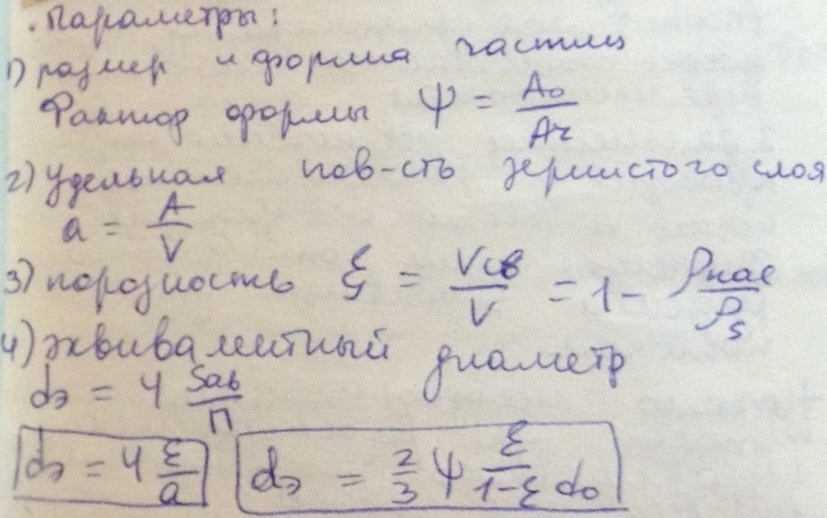 . Параметры:
1) размер и форма частиц
Фактор формы ψ = A₀/Aч
2) Удельная пов-сть зернистого слоя
a = A/V
3) порозность ξ = Vсв/V = 1 - ρнас/ρs
4) эквивалентный диаметр
dэ = 4 Sсв/П
dэ = 4 ξ/a dэ = 2/3 ψ ξ/1-ξ d₀